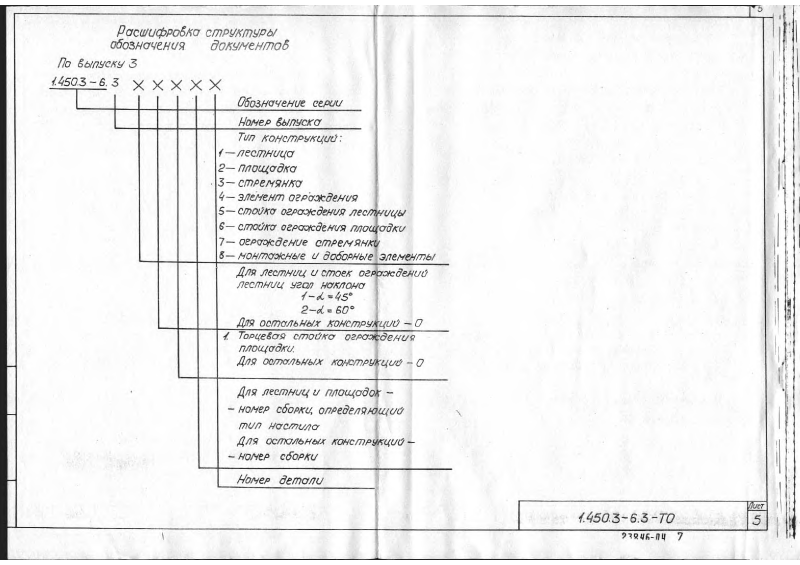 5
Расшифровка структуры
обозначения документов
По выпуску 3
1.450.3-6.3 X X X X X
Обозначение серии
Номер выпуска
Тип конструкций:
1 — лестница
2 — площадка
3 — стремянка
4 — элемент ограждения
5 — стойка ограждения лестницы
6 — стойка ограждения площадки
7 — ограждение стремянки
8 — монтажные и доборные элементы
Для лестниц и стоек ограждений
лестниц угол наклона
1-α = 45°
2-α = 60°
Для остальных конструкций - 0
1. Торцевая стойка ограждения
площадки.
Для остальных конструкций - 0
Для лестниц и площадок -
- номер сборки, определяющий
тип настила
Для остальных конструкций -
- номер сборки
Номер детали
1.450.3-6.3-ТО
Лист
5
23846-04 7